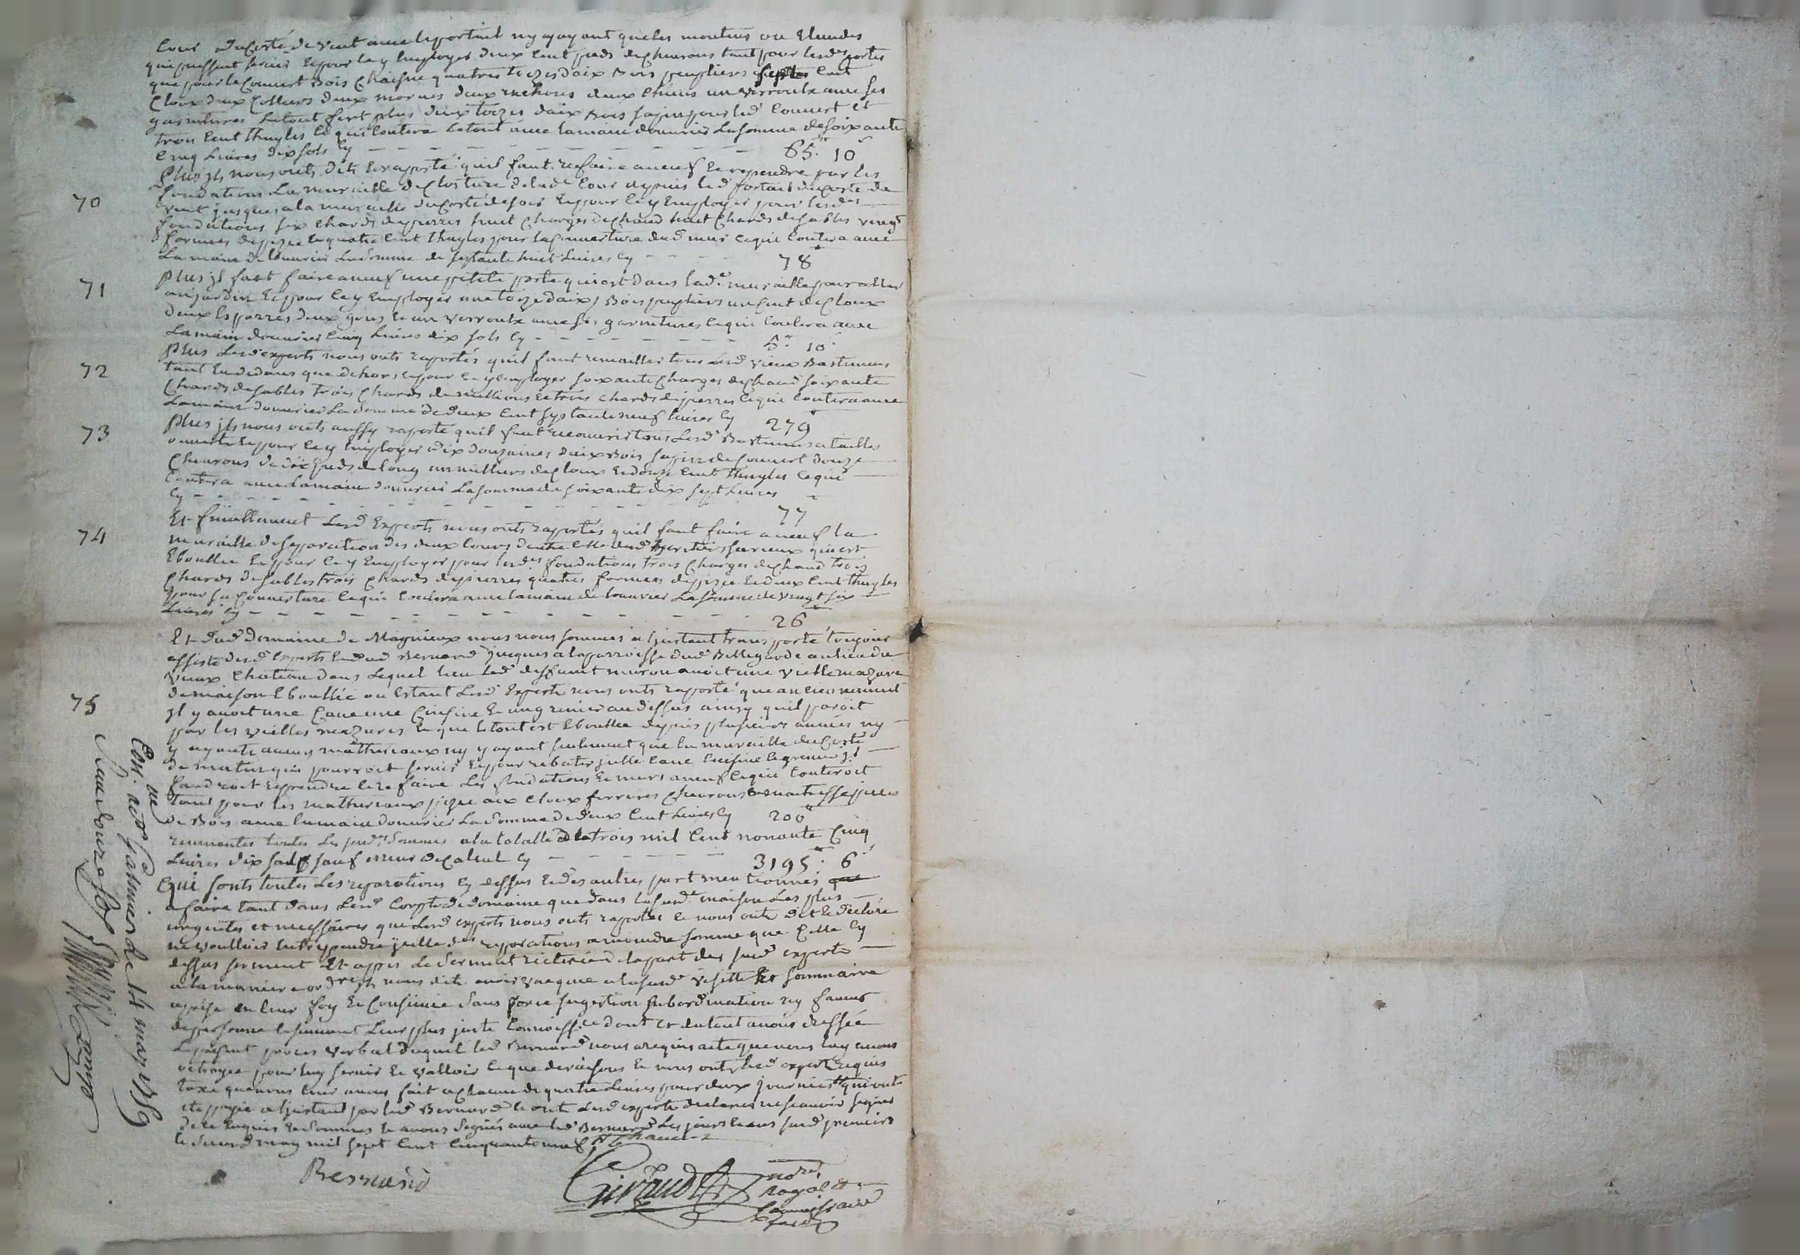 Cour du Costé de vent avec le portail ny ayant que les montens ou Elindes
qui puissent servir Et pour ce y Employer deux Cent pieds de chevrons tant pour lesd portes
que pour le Couvert Bois Chaisne quatres toizes d'aix Bois peuplieres septes Cent
Cloux deux Colliers deux mornes deux un verroulx avec ses
garnitures le tout fert plus deux toizes d'aix Bois sapin pour led Couvert Et
trois Cent thuyles Ce qui Coutera le tout avec la main d'ouvrier La somme de soixante
Cinq Livres dix sols Cy 65 10
70
Plus ils nous onts dits Et raporté qu'il faut refaire aneuf Et rependre par les
fondations La muraille de Closture de lade Cour depuis led portail du Costé de
vent jusques a la muraille du Costé de soir Et pour ce y Employer pour lesdes
fondations six Chards de pierres huit Charges de chaud huit Chards de sables vingt
formées de pizée Et quatre Cent thuyles pour la Couverture dud mur ce qui Coutera avec
La main de l'ouvrier La somme de septante huit Livres Cy 78
71
Plus il faut faire aneuf une petite porte qui est dans lade muraille pour aller
au jardin Et pour ce y Employer une toize d'aix Bois peupliers un Cent de Cloux
deux Esparres deux gons Et un verroulx avec ses garnitures ce qui Coutera avec
La main d'ouvrier Cinq Livres dix sols Cy 5 10
72
Plus Lesd experts nous onts raportés qu'il faut remailler tous Lesd vieux Bastimens
tant En dedans que dehors Et pour ce y Employer soixante Charges de chaud soixante
Chards de sables trois Chards de Et trois chards de pierres ce qui Coutera avec
La main d'ouvrier La somme de deux Cent septante neuf Livres Cy 279
73
Plus ils nous onts aussy raporté qu'il faut recouvrir tous Lesd Bastimens a tailles
ouverte Et pour ce y Employer dix douzaines d'aix Bois sappin de Couvert douze
Chevrons de dix pieds de long un milliers de Cloux Et douze Cent thuyles ce qui
Coutera avec La main d'ouvrier La somme de soixante dix sept Livres
Cy 77
74
Et finallement Lesd Experts nous onts rapportés qu'il faut faire aneuf la
muraille de separation des deux Cours d'entre Celle dud qui est
Eboullée Et pour ce y Employer pour lesdes fondations trois Charges de chaud trois
Chards de sables trois Chards de pierres quatres formées de pizée Et deux Cent thuyles
pour sa Couverture ce qui Coutera avec la main de l'ouvrier La somme de vingt six
Livres Cy 26
Et dud domaine de Magnieux nous nous sommes a l'instant transporté toujours
assisté desd Experts Et dud Bernard jusques a la parroisse dud Bellegarde au lieu du
vieux Chateau dans Lequel lieu led deffunt avoit une vielle mazure
75
de maison Eboullée ou Estant Lesd Experts nous onts raporté que anciennement
il y avoit une Cave une Cuisine Et un grenier au dessus ainsy qu'il paroit
par les vielles mazures Et que le tout est Eboullée depuis plusieurs années ny
y ayants aucuns mathereaux ny y ayant seulement que la muraille du Costé
de matin qui pourroit servir Et pour rebatir Cave Cuisine Et grenier il
faudroit reprendre Et refaire Les fondations Et murs aneuf ce qui Couteroit
tant pour les mathereaux aix Cloux ferrures Chevrons
de Bois avec la main d'ouvrier La somme de deux Cent Livres Cy 200
revenantes toutes Les susd sommes a la totalle de trois mil Cent nonante Cinq
Livres dix sols sauf erreur de Calcul Cy 3195 6
Qui sonts toutes Les reparations Cy dessus Et des autres part mentionnés
a faire tant dans Lesd Corps de domaine que dans la susde maison Les plus
urgentes et necessaires que Lesd experts nous onts raportés Et nous onts dit Et declaré
ne voulloir Entreprendre reparations a moindre somme que Celle Cy
dessus serment Et apprès Le serment reitéré de la part des susd experts
a la maniere ord nous dits avoir vacqué a la susde visitte Et sommaire
aprise en leur foy Et Consience sans force sugestion subordination ny faveur
de personne Et suivant Leur plus juste Connoissce dont Et du tout avons dressée
Le présent procès verbal duquel led Bernard nous a requis acte que nous luy avons
octroyé pour luy servir Et valloir ce que de raisons Et nous onts lesd experts requis
taxe que nous leur avons fait a chacun de quatre Livres pour deux journées qui ont
été payée a l'instant par led Bernard Et ont Lesd experts declarés ne sçavoir signer
de ce Enquis Et sommés Et avons signés avec led Bernard Les jours Et ans susd premiers
Et second may mil sept Cent Cinquante neuf
Bernard
Giraud
nore
Royal
Commissaire
Con. ac. Garnier le 14 may 1759
Reçu douze sols